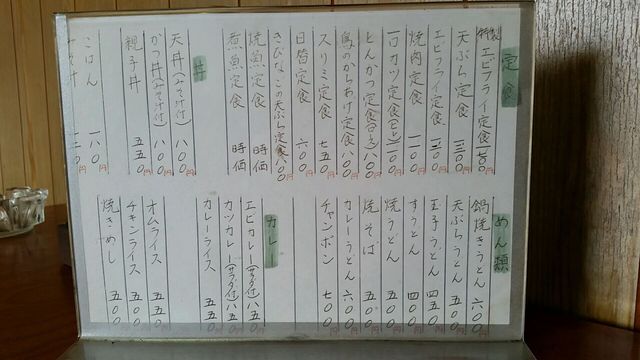 定食
特製エビフライ定食 一七〇〇円
天ぷら定食 一三〇〇円
エビフライ定食 一三〇〇円
焼肉定食 一一〇〇円
一口カツ定食
とんかつ定食 八〇〇円
鳥のからあげ定食 八〇〇円
スリミ定食 七五〇円
日替定食 六〇〇円
きびなごの天ぷら定食 八〇〇円
焼魚定食 時価
煮魚定食 時価
丼
天丼(みそ汁付) 八〇〇円
かつ丼(みそ汁付) 八〇〇円
親子丼 五五〇円
ごはん 一八〇円
めん類
鍋焼きうどん 六〇〇円
天ぷらうどん 五〇〇円
玉子うどん 四五〇円
すうどん 四〇〇円
焼うどん 五五〇円
焼そば 五〇〇円
カレーうどん 六〇〇円
チャンポン 七〇〇円
カレー
エビカレー(サラダ付) 八五〇円
カツカレー(サラダ付) 八五〇円
カレーライス 五五〇円
オムライス 五五〇円
チキンライス 五五〇円
焼きめし 五五〇円